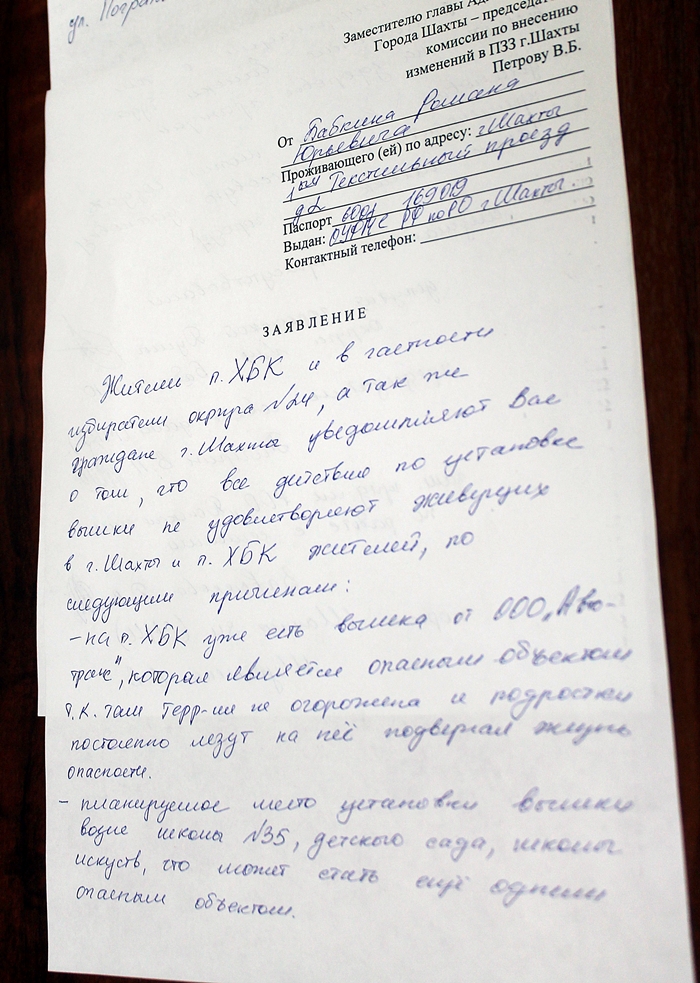 ул. Погран
Заместителю главы Ад
Города Шахты – председат
комиссии по внесению
изменений в ПЗЗ г.Шахты
Петрову В.Б.
От Бабкина Романа
Юрьевича
Проживающего (ей) по адресу: г.Шахты
1ый Текстильный проезд
д2
Паспорт 6001 169019
Выдан: ОУФМС РФ по РО г Шахты.
Контактный телефон:
ЗАЯВЛЕНИЕ
Жители п. ХБК и в частности
избиратели округа №24, а так же
граждане г. Шахты уведомляют Вас
о том, что все действия по установке
вышки не удовлетворяют живущих
в г. Шахты и п. ХБК жителей, по
следующим причинам:
- на п. ХБК уже есть вышка от ООО „Авто-
транс", которая является опасным объектом
т.к. там терр-ия не огорожена и подростки
постоянно лезут на неё подвергая жизнь
опасности.
- планируемое место установки вышки
возле школы №35, детского сада, школы
искуств, что может стать ещё одним
опасным объектом.